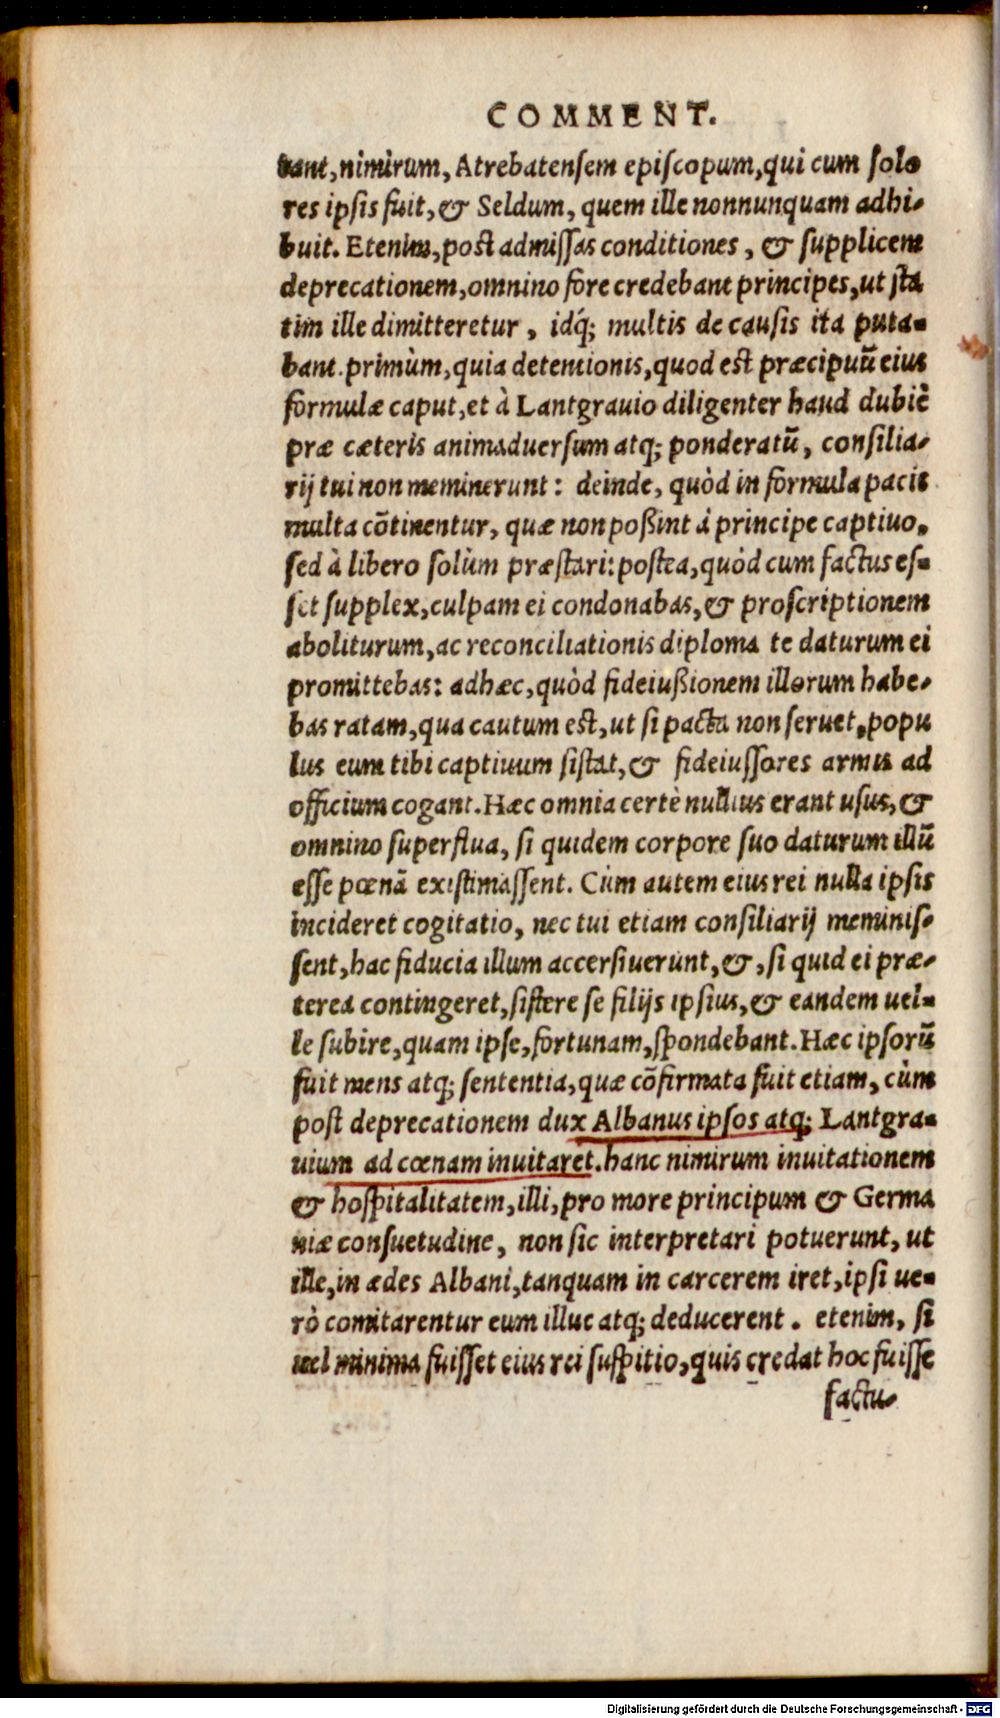 COMMENT.
bant, nimirum, Atrebatensem episcopum, qui cum solo
res ipsis fuit, & Seldum, quem ille nonnunquam adhi-
buit. Etenim, post admissas conditiones, & supplicem
deprecationem, omnino fore credebant principes, ut sta
tim ille dimitteretur, idq́; multis de causis ita puta-
bant. primùm, quia detentionis, quod est præcipuũ eius
formulæ caput, et à Lantgrauio diligenter haud dubiè
præ cæteris animaduersum atq; ponderatũ, consilia-
rij tui non meminerunt: deinde, quòd in formula pacis
multa cõtinentur, quæ non poßint à principe captiuo,
sed à libero solùm præstari: postea, quòd cum factus es-
set supplex, culpam ei condonabas, & proscriptionem
aboliturum, ac reconciliationis diploma te daturum ei
promittebas: adhæc, quòd fideiußionem illorum habe-
bas ratam, qua cautum est, ut si pacta non seruet, popu
lus eum tibi captiuum sistat, & fideiussores armis ad
officium cogant. Hæc omnia certè nullius erant usus, &
omnino superflua, si quidem corpore suo daturum illũ
esse pœnã existimassent. Cùm autem eius rei nulla ipsis
incideret cogitatio, nec tui etiam consiliarij meminis-
sent, hac fiducia illum accersiuerunt, &, si quid ei præ-
terea contingeret, sistere se filijs ipsius, & eandem uel-
le subire, quam ipse, fortunam, spondebant. Hæc ipsorũ
fuit mens atq; sententia, quæ cõfirmata fuit etiam, cùm
post deprecationem dux Albanus ipsos atq; Lantgra-
uium ad cœnam inuitaret. hanc nimirum inuitationem
& hospitalitatem, illi, pro more principum & Germa
niæ consuetudine, non sic interpretari potuerunt, ut
ille, in ædes Albani, tanquam in carcerem iret, ipsi ue-
rò comitarentur eum illuc atq; deducerent. etenim, si
uel minima fuisset eius rei suspitio, quis credat hoc fuisse
factu-
Digitalisierung gefördert durch die Deutsche Forschungsgemeinschaft - DFG